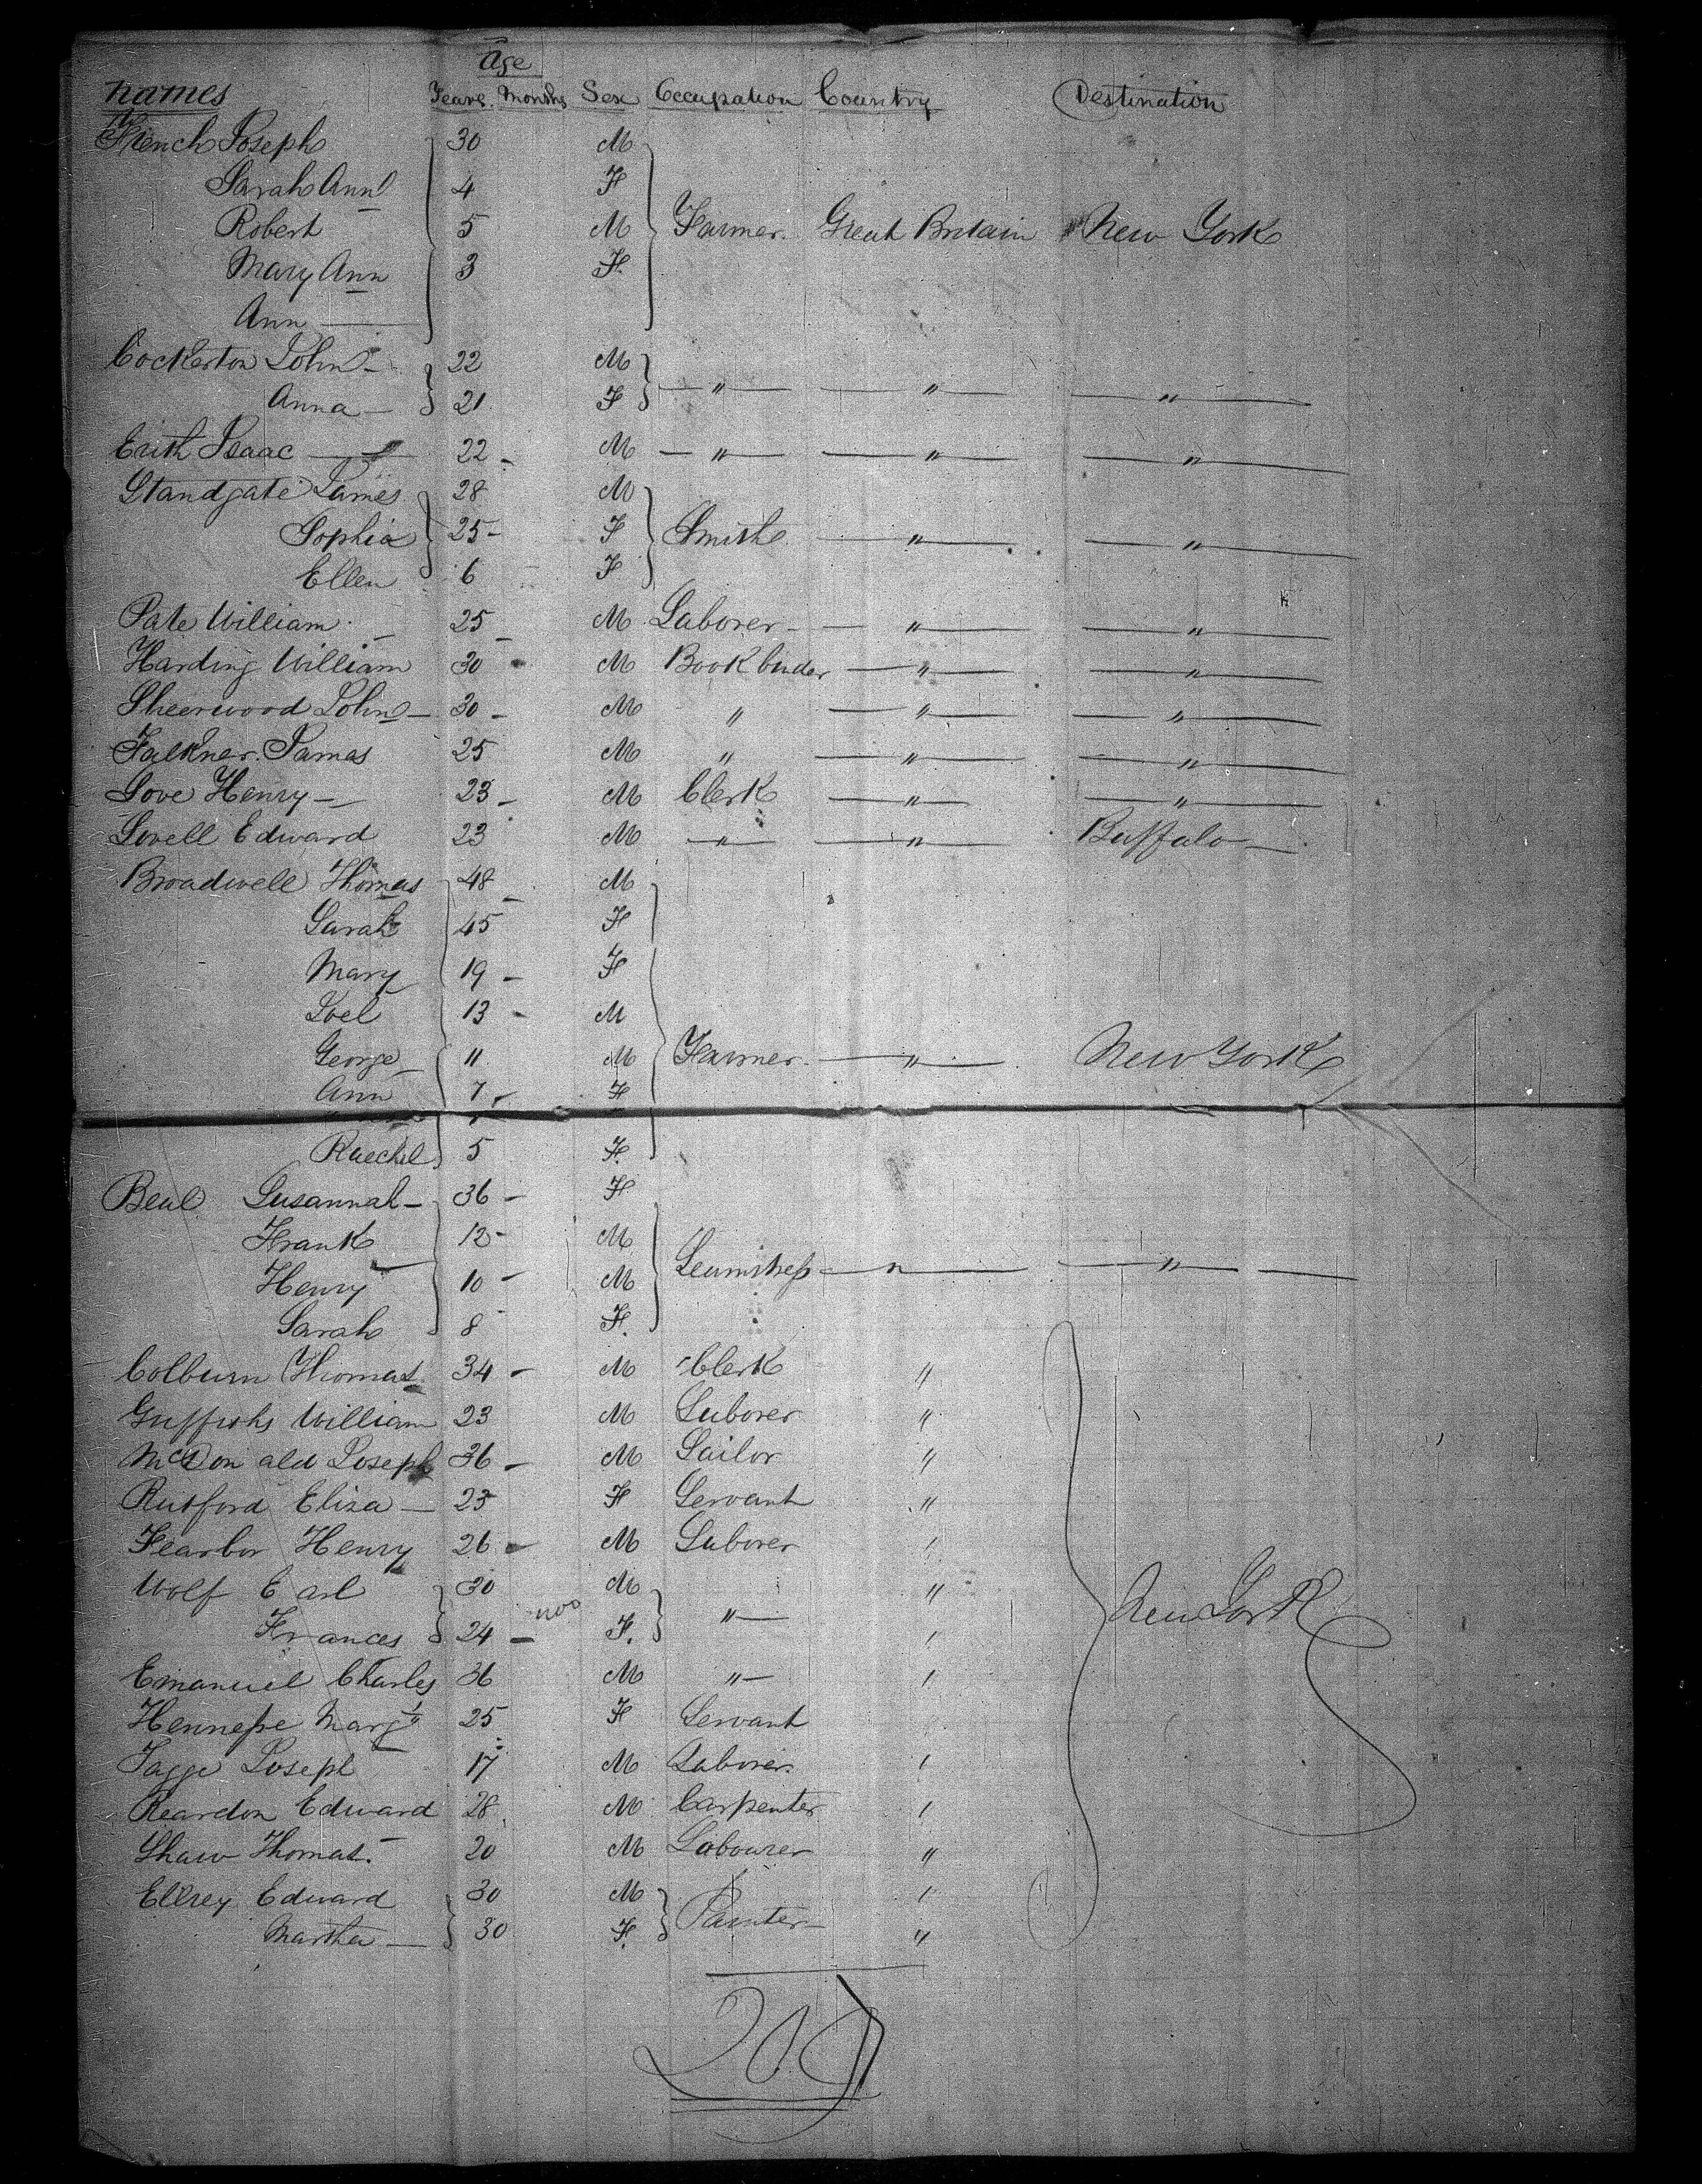 Age
Names Years Months Sex Occupation Country Destination
French Joseph 30 M
Sarah Ann 4 F
Robert 5 M Farmer Great Britain New York
Mary Ann 3 F
Ann
Cockerton John 22 M
Anna 21 F " " "
Erith Isaac 22 M " " "
Standgate James 28 M
Sophia 25 F Smith " "
Ellen 6 F
Pate William 25 M Laborer " "
Harding William 30 M Book binder " "
Sheerwood John 30 M " " "
Falkner James 25 M " " "
Love Henry 23 M Clerk " "
Lovell Edward 23 M " " Buffalo
Broadwell Thomas 48 M
Sarah 45 F
Mary 19 F
Joel 13 M
George 11 M Farmer " New York
Ann 7 F
Raechel 5 F
Beal Susannah 36 F
Frank 12 M
Henry 10 M Seamstress " "
Sarah 8 F
Colburn Thomas 34 M Clerk "
Griffiths William 23 M Laborer "
McDonald Joseph 36 M Sailor "
Rutford Eliza 23 F Servant "
Fearbor Henry 26 M Laborer "
Wolf Carl 30 M "
Frances 24 F " " New York
Emanuel Charles 36 M " "
Marg 25 F Servant
Jagge Joseph 17 M Laborer "
Reardon Edward 28 M Carpenter "
Shaw Thomas 20 M Labourer "
Ellrey Edward 30 M "
Martha 30 F Painter "